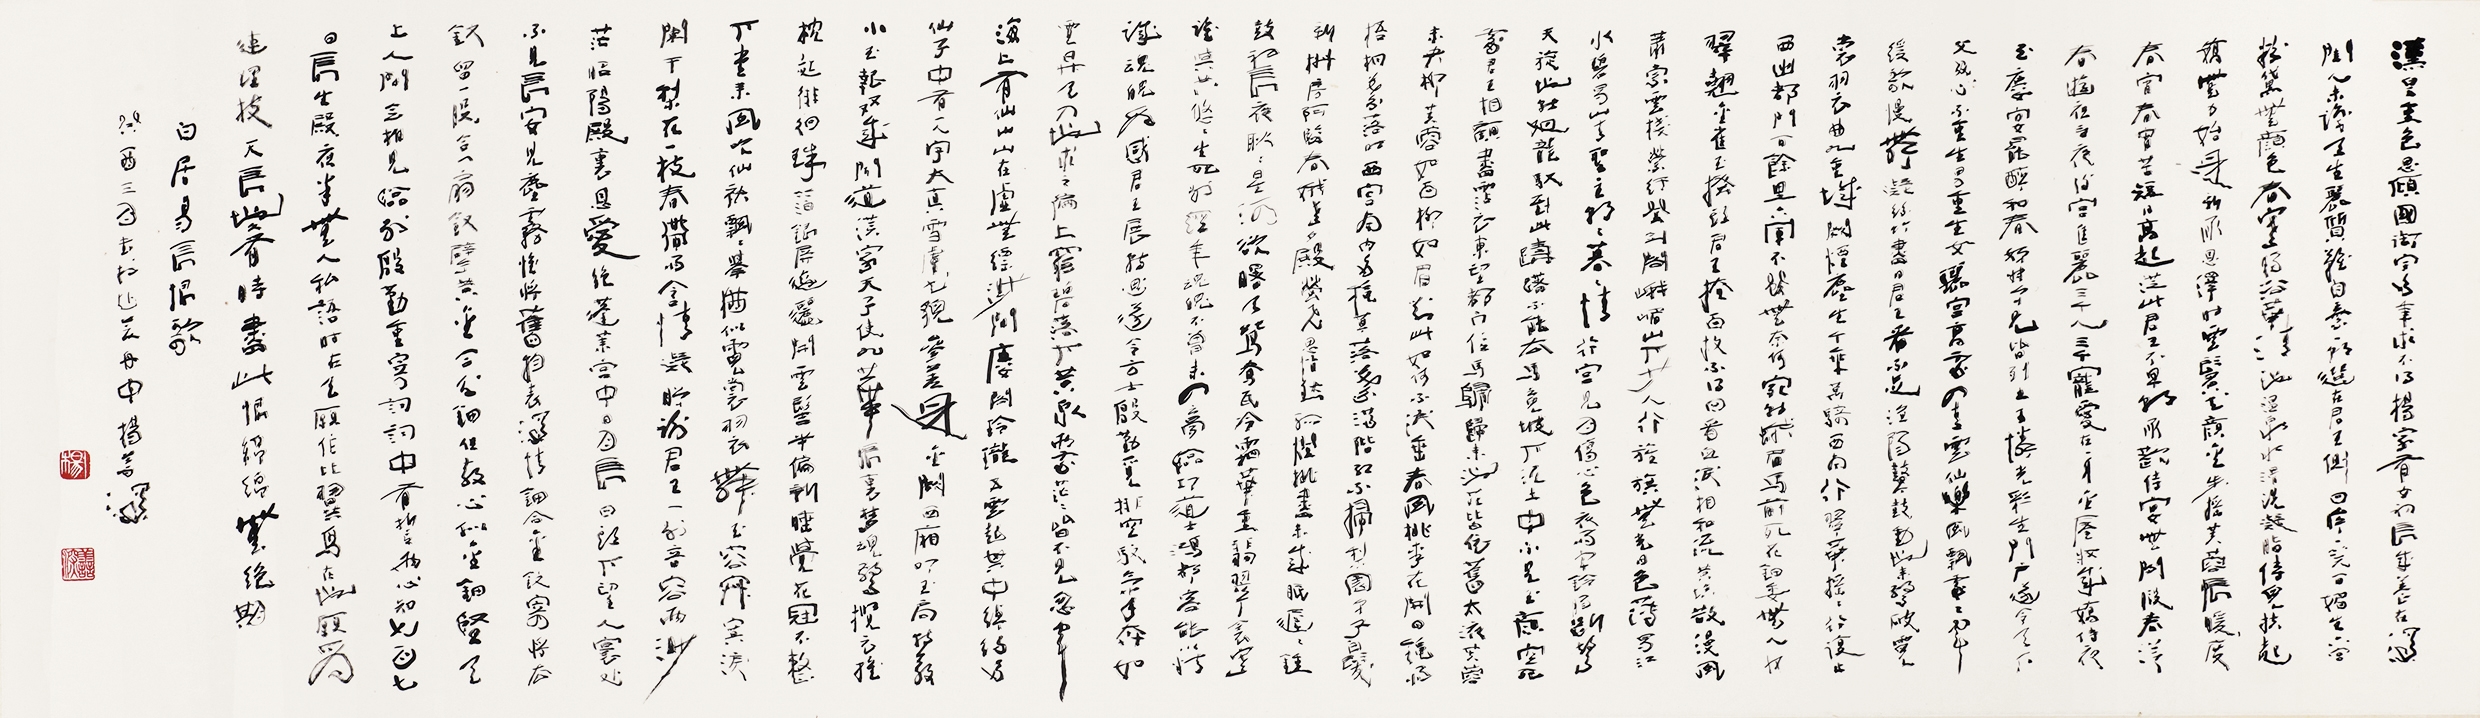 漢皇重色思傾國御宇多年求不得楊家有女初長成養在深
閨人未識天生麗質難自棄一朝選在君王側回眸一笑百媚生六宮
粉黛無顏色春寒賜浴華清池溫泉水滑洗凝脂侍兒扶起
嬌無力始是新承恩澤時雲鬢花顏金步搖芙蓉帳暖度
春宵春宵苦短日高起從此君王不早朝承歡侍宴無閒暇春從
春遊夜專夜後宮佳麗三千人三千寵愛在一身金屋妝成嬌侍夜
玉樓宴罷醉和春姊妹弟兄皆列土可憐光彩生門戶遂令天下
父母心不重生男重生女驪宮高處入青雲仙樂風飄處處聞
緩歌慢舞凝絲竹盡日君王看不足漁陽鼙鼓動地來驚破霓
裳羽衣曲九重城闕煙塵生千乘萬騎西南行翠華搖搖行復止
西出都門百餘里六軍不發無奈何宛轉蛾眉馬前死花鈿委無人收
翠翹金雀玉搔頭君王掩面救不得回看血淚相和流黃埃散漫風
蕭索雲棧縈紆登劍閣峨嵋山下少人行旌旗無光日色薄蜀江
水碧蜀山青聖主朝朝暮暮情行宮見月傷心色夜雨聞鈴腸斷聲
天旋地轉迴龍馭到此躊躇不能去馬嵬坡下泥土中不見玉顏空死
處君王相顧盡霑衣東望都門信馬歸歸來池苑皆依舊太液芙蓉
未央柳芙蓉如面柳如眉對此如何不淚垂春風桃李花開日秋雨
梧桐葉落時西宮南內多秋草落葉滿階紅不掃梨園子弟白髮
新椒房阿監青娥老夕殿螢飛思悄然孤燈挑盡未成眠遲遲鐘
鼓初長夜耿耿星河欲曙天鴛鴦瓦冷霜華重翡翠衾寒
誰與共悠悠生死別經年魂魄不曾來入夢臨邛道士鴻都客能以精
誠魂魄為感君王展轉思遂令方士殷勤覓排空馭氣奔如
電昇天入地求之遍上窮碧落下黃泉兩處茫茫皆不見忽聞
海上有仙山山在虛無縹緲間樓閣玲瓏五雲起其中綽約多
仙子中有一人字太真雪膚花貌參差是金闕西廂叩玉扃轉教
小玉報双成聞道漢家天子使九華帳裏夢魂驚攬衣推
枕起徘徊珠箔銀屏邐迤開雲髻半偏新睡覺花冠不整
下堂來風吹仙袂飄飄舉猶似霓裳羽衣舞玉容寂寞淚
闌干梨花一枝春帶雨含情凝睇謝君王一別音容兩渺
茫昭陽殿裏恩愛絕蓬萊宮中日月長回頭下望人寰處
不見長安見塵霧惟將舊物表深情鈿合金釵寄將去
釵留一股合一扇釵擘黃金合分鈿但教心似金鈿堅天
上人間會相見臨別殷勤重寄詞詞中有誓兩心知七月七
日長生殿夜半無人私語時在天願作比翼鳥在地願為
連理枝天長地久有時盡此恨綿綿無絕期
白居易長恨歌
癸酉三月書於 舟中楊善深
楊
善深